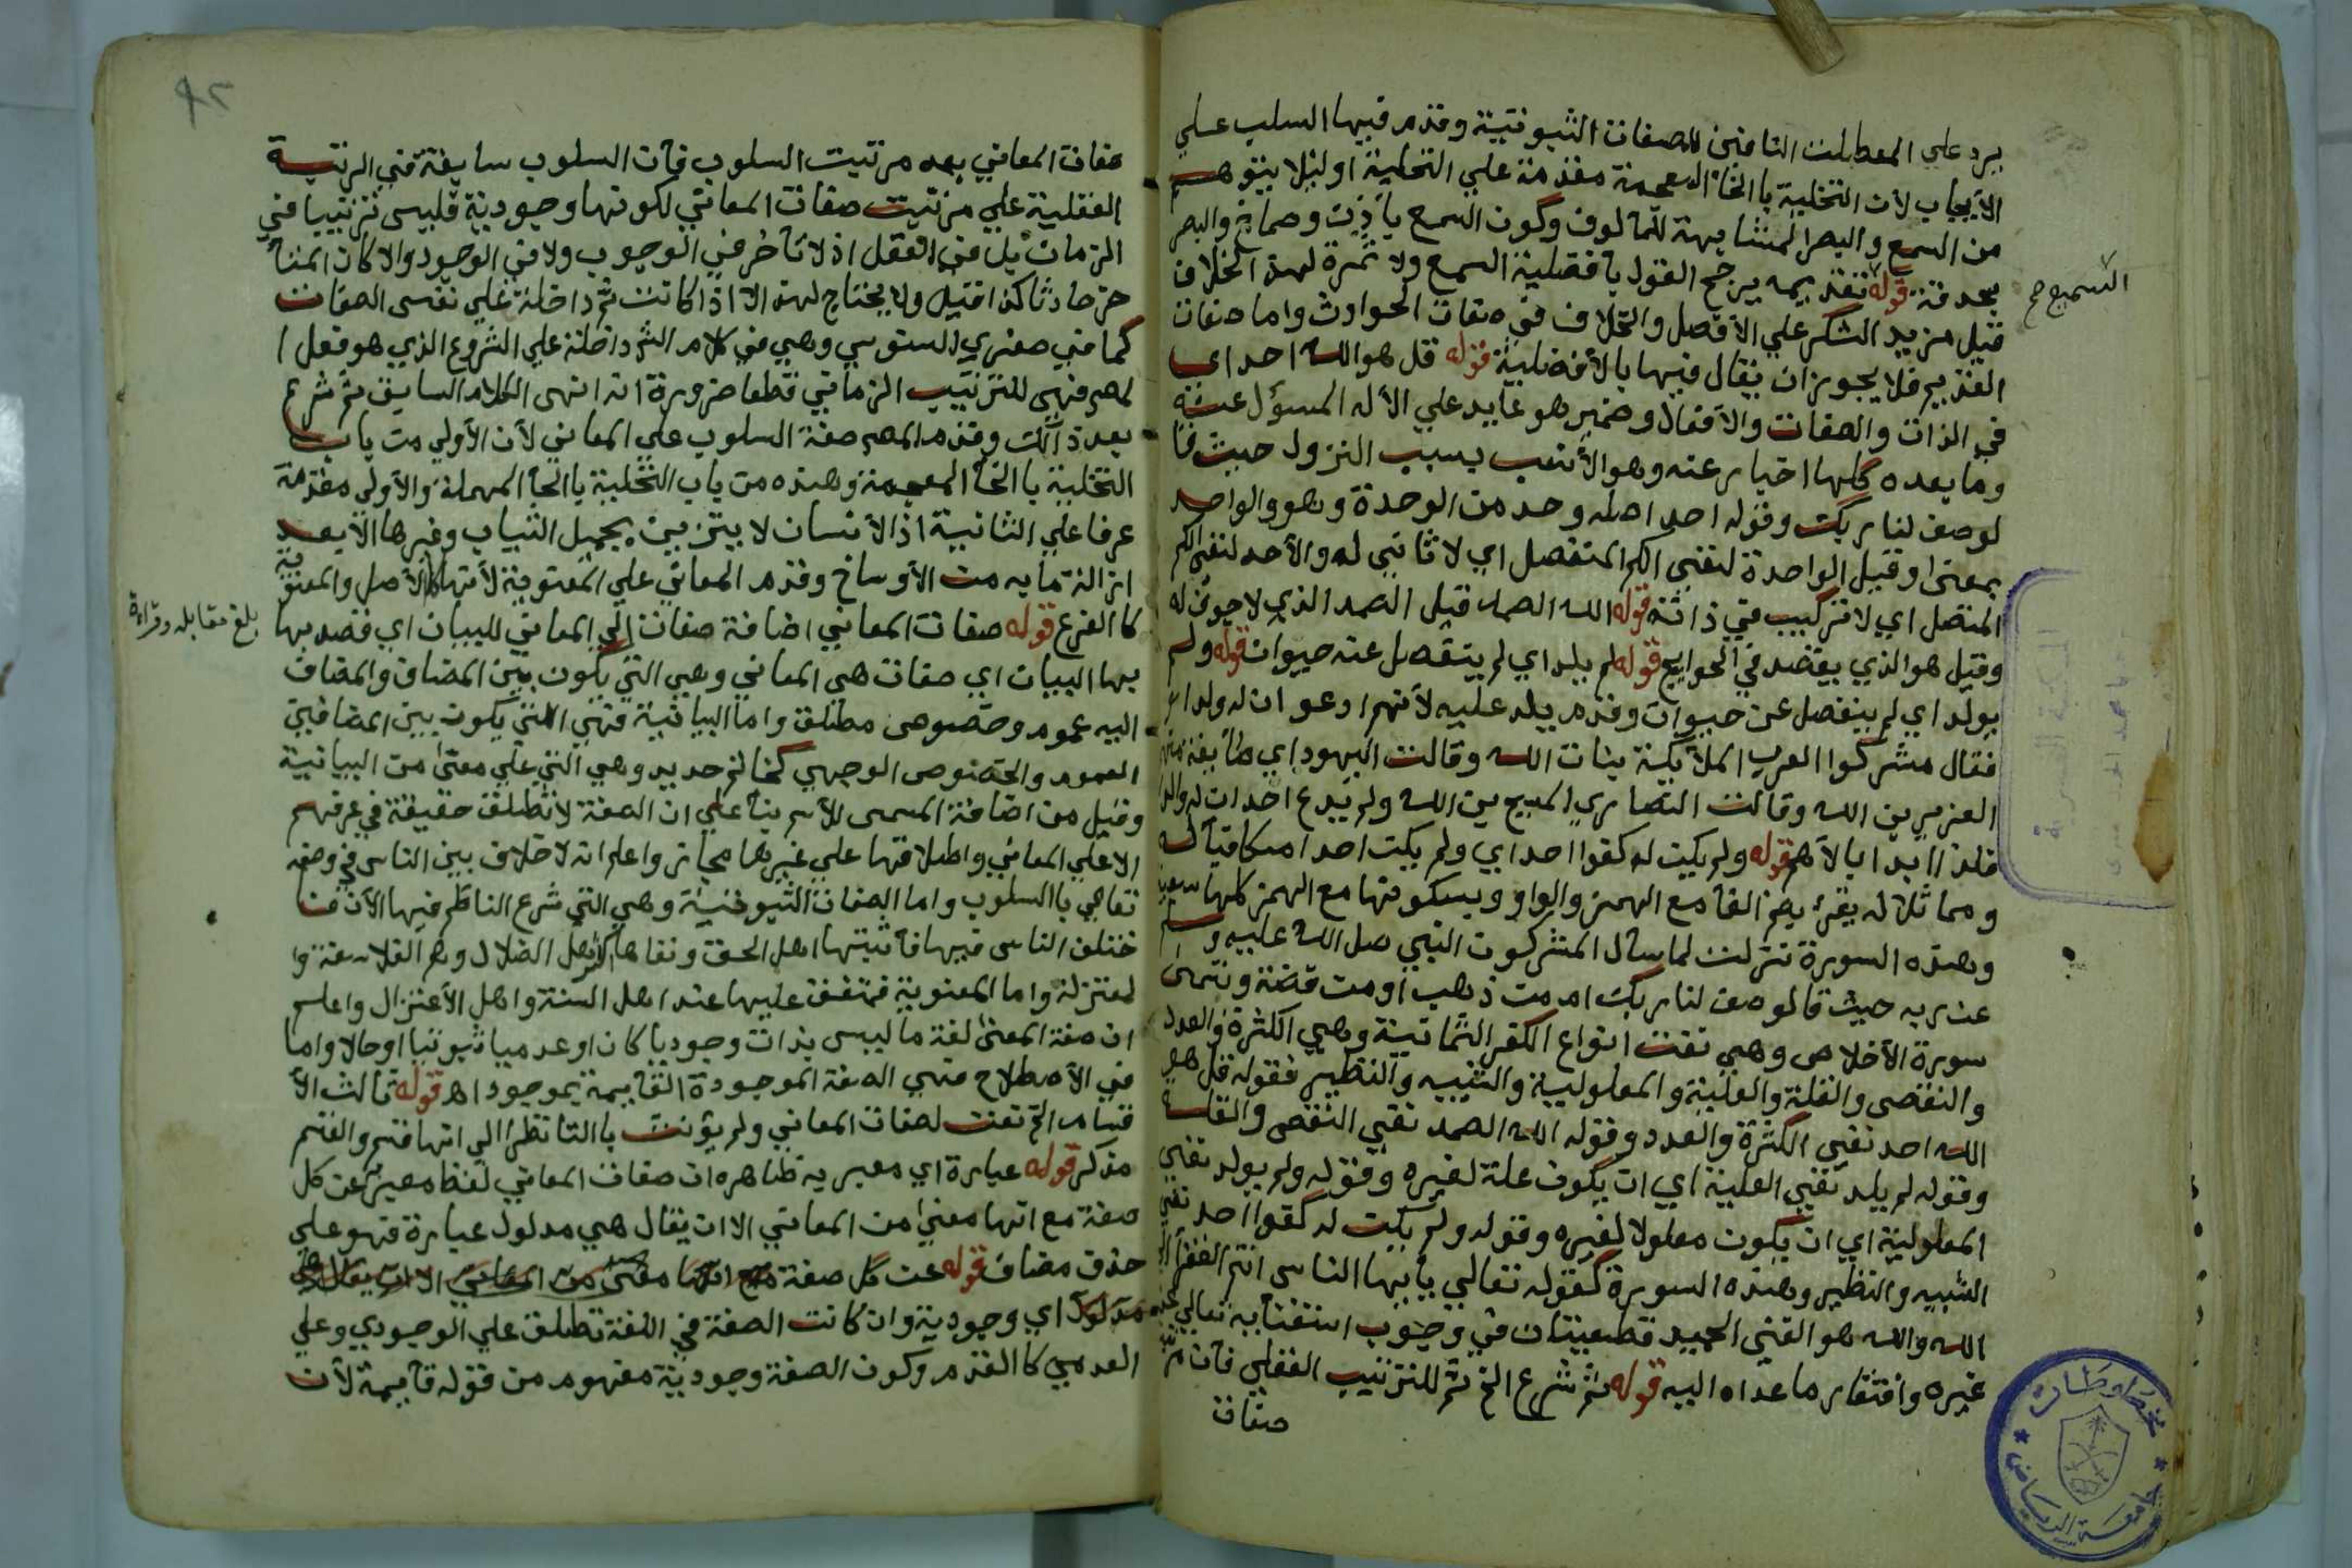 يرد علي المعطلت النافين للصفات الثبوتية وقدم فيها السلب علي
الأيجاب لأن التخلية بالخا المعجمة مقدمة علي التحلية اوليلا يتوهم
من السمع والبصر المشابهة للمالوف وكون السمع بأذن وصماخ والبصر
بحدقة قوله تقديمه يرجح القول بافضلية السمع ولا ثمرة لهذا الخلاف
السميع صح
قيل مزيد الشكر علي الأفضل والخلاف في صفات الحوادث واما صفات
القديم فلا يجوز ان يقال فيها بالأفضلية قوله قل هو الله احد اي
في الذات والصفات والأفعال وضمير هو عايد علي الأله المسؤل عنه
وما بعده كلها اخبار عنه وهو الأنسب بسبب النزول حيث قا
لو صف لنا ربك وقوله احد اصله وحد من الوحدة وهو والواحد
بمعنى وقيل الواحدة لنفي الكم المنفصل اي لا ثاني له والأحد لنفي الكم
المتصل اي لا تركيب في ذاته قوله الله الصمد قيل الصمد الذي لا جوف له
وقيل هو الذي يقصد في الحوايج قوله لم يلد اي لم ينفصل عنه حيوان قوله ولم
يولد اي لم ينفصل عن حيوان وقدم يلد عليه لأنهم ادعوا ان له ولدا
فقال مشركوا العرب الملأيكة بنات الله وقالت اليهود اي طايفة منهم
العزير بن الله وقالت النصاري المسيح بن الله ولم يدع احد ان له والدا
فلذا ابدا بالأهم قوله ولم يكن له كفوا احد اي ولم يكن احد امكافيا له
ومماثلا له يقرئ بضم الفا مع الهمز والواو وبسكونها مع الهمز كلها سبعية
وهذه السورة نزلت لما سأل المشركون النبي صل الله عليه وسلم
عن ربه حيث قالو صف لنا ربك امن ذهب أو من فضة وتسمى
سورة الأخلاص وهي نفت انواع الكفر الثمانية وهي الكثرة والعدد
والنقص والقلة والعلية والمعلولية والشبيه والنظير فقوله قل هو
الله احد نفي الكثرة والعدد وقوله الله الصمد نفي النقص والقلة
وقوله لم يلد نفي العلية اي ان يكون علة لغيره وقوله ولم يولد نفي
المعلولية اي ان يكون معلولا لغيره وقوله ولم يكن له كفوا احد نفي
الشبيه والنظير وهذه السورة كقوله تعالي يأيها الناس انتم الفقرا الي
الله والله هو الغني الحميد قطعيتان في وجوب استغنائه تعالي عن
غيره وافتقار ما عداه اليه قوله ثم شرع الخ ثم للترتيب العقلي فان
صفات
٤٢
صفات المعاني بعد مرتبت السلوب فأن السلوب سابقة في الرتبة
العقلية علي مرتبت صفات المعاني لكونها وجودية فليس ترتيبا في
الزمان بل في العقل اذ لا تأخر في الوجوب ولا في الوجود والا كان المتأ
خر حادثا كذا قيل ولا يحتاج لهذا الا اذا كانت ثم داخلة علي نفس الصفات
كما في صغري السنوسي وهي في كلام الش داخلة علي الشروع الذي هو فعل ا
لمص فهي للترتيب الزماني قطعا ضرورة انه انتهى الكلام السابق ثم شرع
بعد ذالك وقدم المص صفة السلوب علي المعاني لأن الأولي من باب
التخلية بالخا المعجمة وهذه من باب التحلية بالحا المهملة والأولي مقدمة
عرفا علي الثانية اذ الأنسان لا يتزين بجميل الثياب وغيرها الا بعد
ازالة ما به من الأوساخ وقدم المعاني علي المعنوية لأنها كالأصل والمعنوية
كالفرع قوله صفات المعاني اضافة صفات إلي المعاني للبيان اي قصد بها
بلغ مقابله وقراة
بها البيان اي صفات هي المعاني وهي التي يكون بين المضاف والمضاف
اليه عموم وخصوص مطلق واما البيانية فهي التي يكون بين المضافين
العموم والخصوص الوجهي كخاتم حديد وهي التي علي معنى من البيانية
وقيل من اضافة المسمى للأسم بنأ علي ان الصفة لا تطلق حقيقة في عرفهم
الا علي المعاني واطلاقها علي غيرها مجاز واعلم انه لا خلاف بين الناس في وصفه
تعالي بالسلوب واما الصفات الثبوتية وهي التي شرع الناظم فيها الأن فا
ختلف الناس فيها فأثبتها اهل الحق ونفاها اهل الضلال وهم الفلاسفة وا
لمعتزلة واما المعنوية فمتفق عليها عند اهل السنة واهل الأعتزال واعلم
ان صفة المعنى لغة ما ليس بذات وجوديا كان او عدميا ثبوتيا او حالا واما
في الأصطلاح فهي الصفة الموجودة القايمة بموجود اه قوله ثالث الأ
قسام الخ نعت لصفات المعاني ولم يؤنث بالتا نظرا الي انها قسم والقسم
مذكر قوله عبارة اي معبر به ظاهره ان صفات المعاني لفظ معبر به عن كل
صفة مع انها معنى من المعاني الا ان يقال هي مدلول عبارة فهو علي
حذف مضاف قوله عن كل صفة مع انها معنى من المعاني الا ان يقال هي
مدلول اي وجودية وان كانت الصفة في اللغة تطلق علي الوجودي وعلي
العدمي كالقدم وكون الصفة وجودية مفهوم من قوله قايمة لأن
مخطوطات
جامعة الرياض